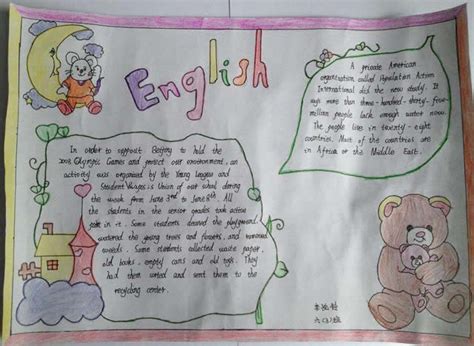 English
In order to support Beijing to hold the
2008 Olympic Games and protect our environment, an
activity was organized by the Young league and
Student is Union of our school during
the week from June 3rd to June 8th. All
the students in the senior grades took action
in it. Some students cleaned the playground,
watered the young trees and flowers, and removed
weeds. Some students collected waste paper,
old books, empty cans and old rags. They
had them sorted and sent them to the
recycling center.
A private American
organization called Population Action
International did the new study. It
says more than three-hundred-thirty-four
million people lack enough water now.
The people live in twenty-eight
countries. Most of the countries are
in Africa or the Middle East.